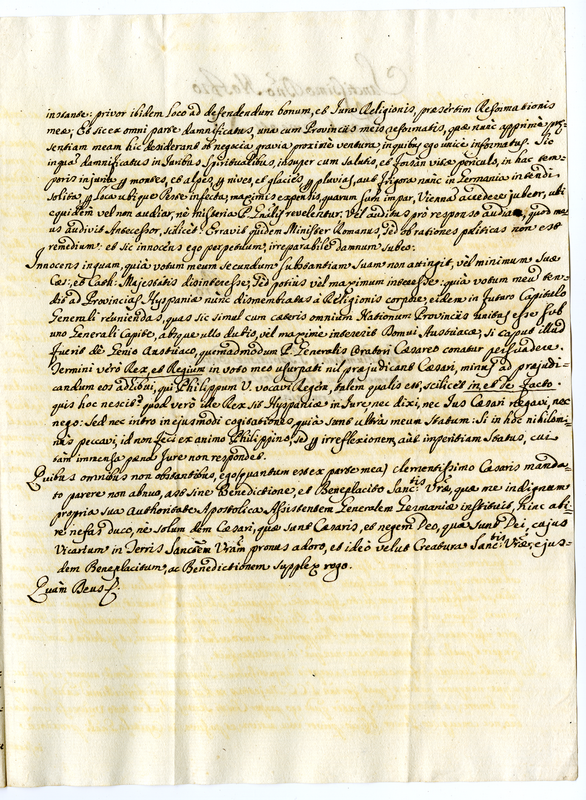 instante: privor ibidem loco ad defendendum bonum, et Jura Religionis, præsertim Reformationis
meæ; Et sic ex omni parte damnificatus, una cum Provinciis meis reformatis, quæ nunc apprimè præ-
sentiam meam hic desiderant ob negocia gravia proximè ventura in quibus ego unicè informatus. Sic
inquã damnificatus in Juribus Spiritualibus, insuper cum salutis, et forsan vitæ periculo, in hac tem-
poris injuria p montes, et alpes p nives, et glacies p pluvias, aut frigora nunc in Germania intendi
solita p loca ubique Peste infecta, maximis expensis, quarum sum impar, Viennã accedere jubeor, ubi
equidem vel non audiar, nè misteria P. revelentur, vel auditus pro responso audiã, quod me-
us audivit Antecessor, scilicet: Gravis quidem Minister Romanus, sed ob rationes politicas non est
remedium: et sic innocens ego perpetuum, irreparabile damnum subeo.
Innocens inquam, quia votum meum secundum substantiam suam non attingit, vel minimum Suæ
Cæs: et Cath: Majestatis disinteresse, sed potius vel maximum interesse: quia votum meũ ten-
dit ad Provincias Hyspaniæ nunc dismembratas à Religionis corpore, eidem in futuro Capitulo
Generali reuniendas, quas sic simul cum cæteris omnium Nationum Provinciis unitas esse sub
uno Generali Capite, absque ullo dubio, vel maximè intererit Domui Austriacæ; si caput illud
fuerit de Genio Austriaco, quemadmodum P. Generalis Oratori Cæsareo conatur persuadere.
Termini verò Rex, et Regium in voto meo usurpati nil præjudicant Cæsari, minus ad præjudi-
candum eos adhibui, qui Philippum V. vocavi Regẽ, talem qualis est, scilicet in esse de facto
quis hoc nescit? quod verò ille Rex sit Hyspaniæ in Jure, nec dixi, nec Jus Cæsari negavi, nec
nego: Sed nec intro in ejusmodi cogitationes, quia sunt ultra meum Statum: Si in hoc nihilomi-
nus peccavi, id non feci ex animo Philippino, sed p irreflexionem, aut imperitiam status, cui
tam immensa pœna Jure non respondet.
Quibus omnibus non obstantibus, ego (quantum est ex parte mea) clementissimo Cæsaris manda-
to parere non abnuo, ast sine Benedictione, et Beneplacito Sanctis Vræ, quæ me indignum
propria sua Authoritate Apostolica Assistentem Generalem Germaniæ instituit, hinc abi-
re nefas duco, nè solum dem Cæsari, quæ sunt Cæsaris, et negem Deo, quæ sunt Dei, cujus
Vicarium in Terris Sanctem Vram pronus adoro, et ideò velut Creatura Sanctis Vræ, ejus-
dem Beneplacitum, ac Benedictionem supplex rogo.
Quam Deus &.